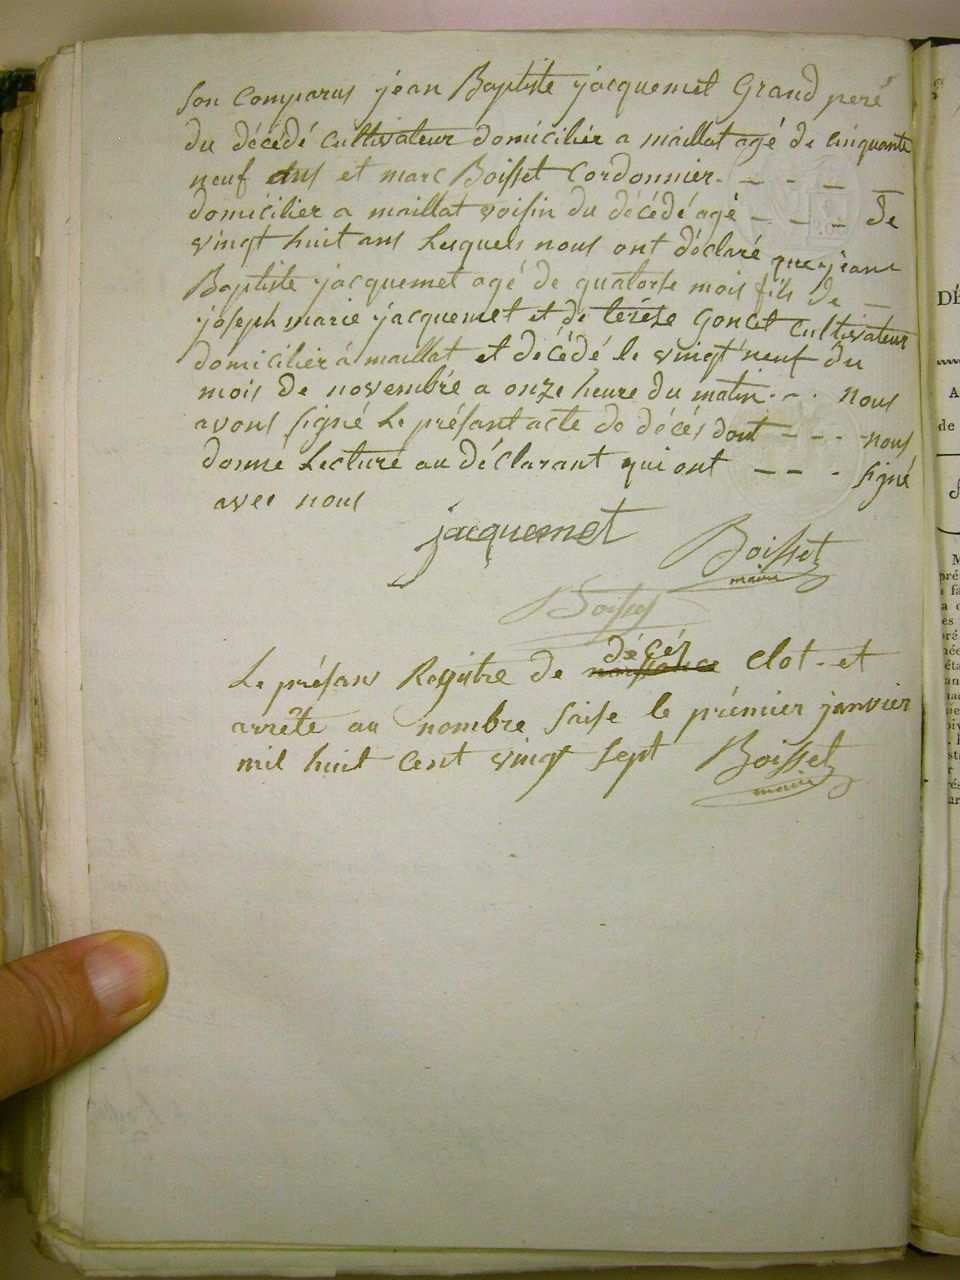 son comparus jéan Baptiste jacquemet Grand peré
du décédé cultivateur domicilier a maillat agé de cinquante
neuf ans et marc Boisset Cordonnier - - - -
domicilier a maillat voisin du décédé agé - - - de
vingt huit ans Lesquels nous ont déclaré que jean
Baptiste jacquemet agé de quatorse mois fils de -
joseph marie jacquemet et de terése Goncet cultivateur
domicilier á maillat et décédé le vingt neuf du
mois de novembré a onze heure du matin - - nous
avons signé Le présant acte de décés dont - - - nous
donné Lecture au déclarant qui ont - - - signé
avec nous
jacquemet
Boisset
maire
Boisset
décés
Le présans Registre de naissance Clot et
arrête au nombre saise le prémier janvier
mil huit cent vingt sept Boisset
maire
DÉ
A
de